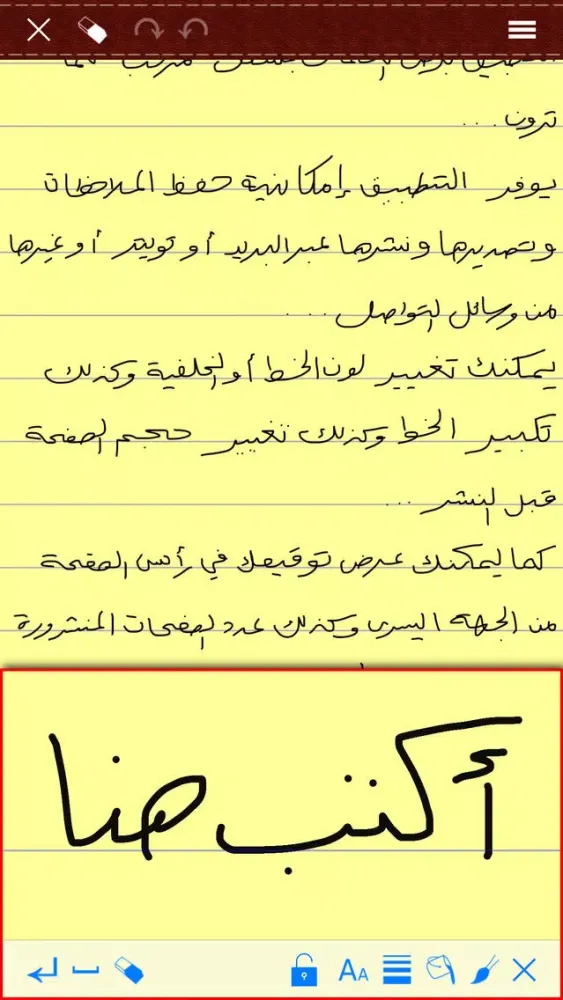 التطبيق بعرض الكلمات بشكل مرتب كما
ترون...
يوفر التطبيق إمكانية حفظ الملاحظات
وتصديرها ونشرها عبر البريد أو تويتر أو غيرها
من وسائل التواصل....
يمكنك تغيير لون الخط أو الخلفية وكذلك
تكبير الخط وكذلك تغيير حجم الصفحة
قبل النشر...
كما يمكنك عرض توقيعك في رأس الصفحة
من الجهة اليسرى وكذلك عدد الصفحات المنشورة
أكتب هنا
AA